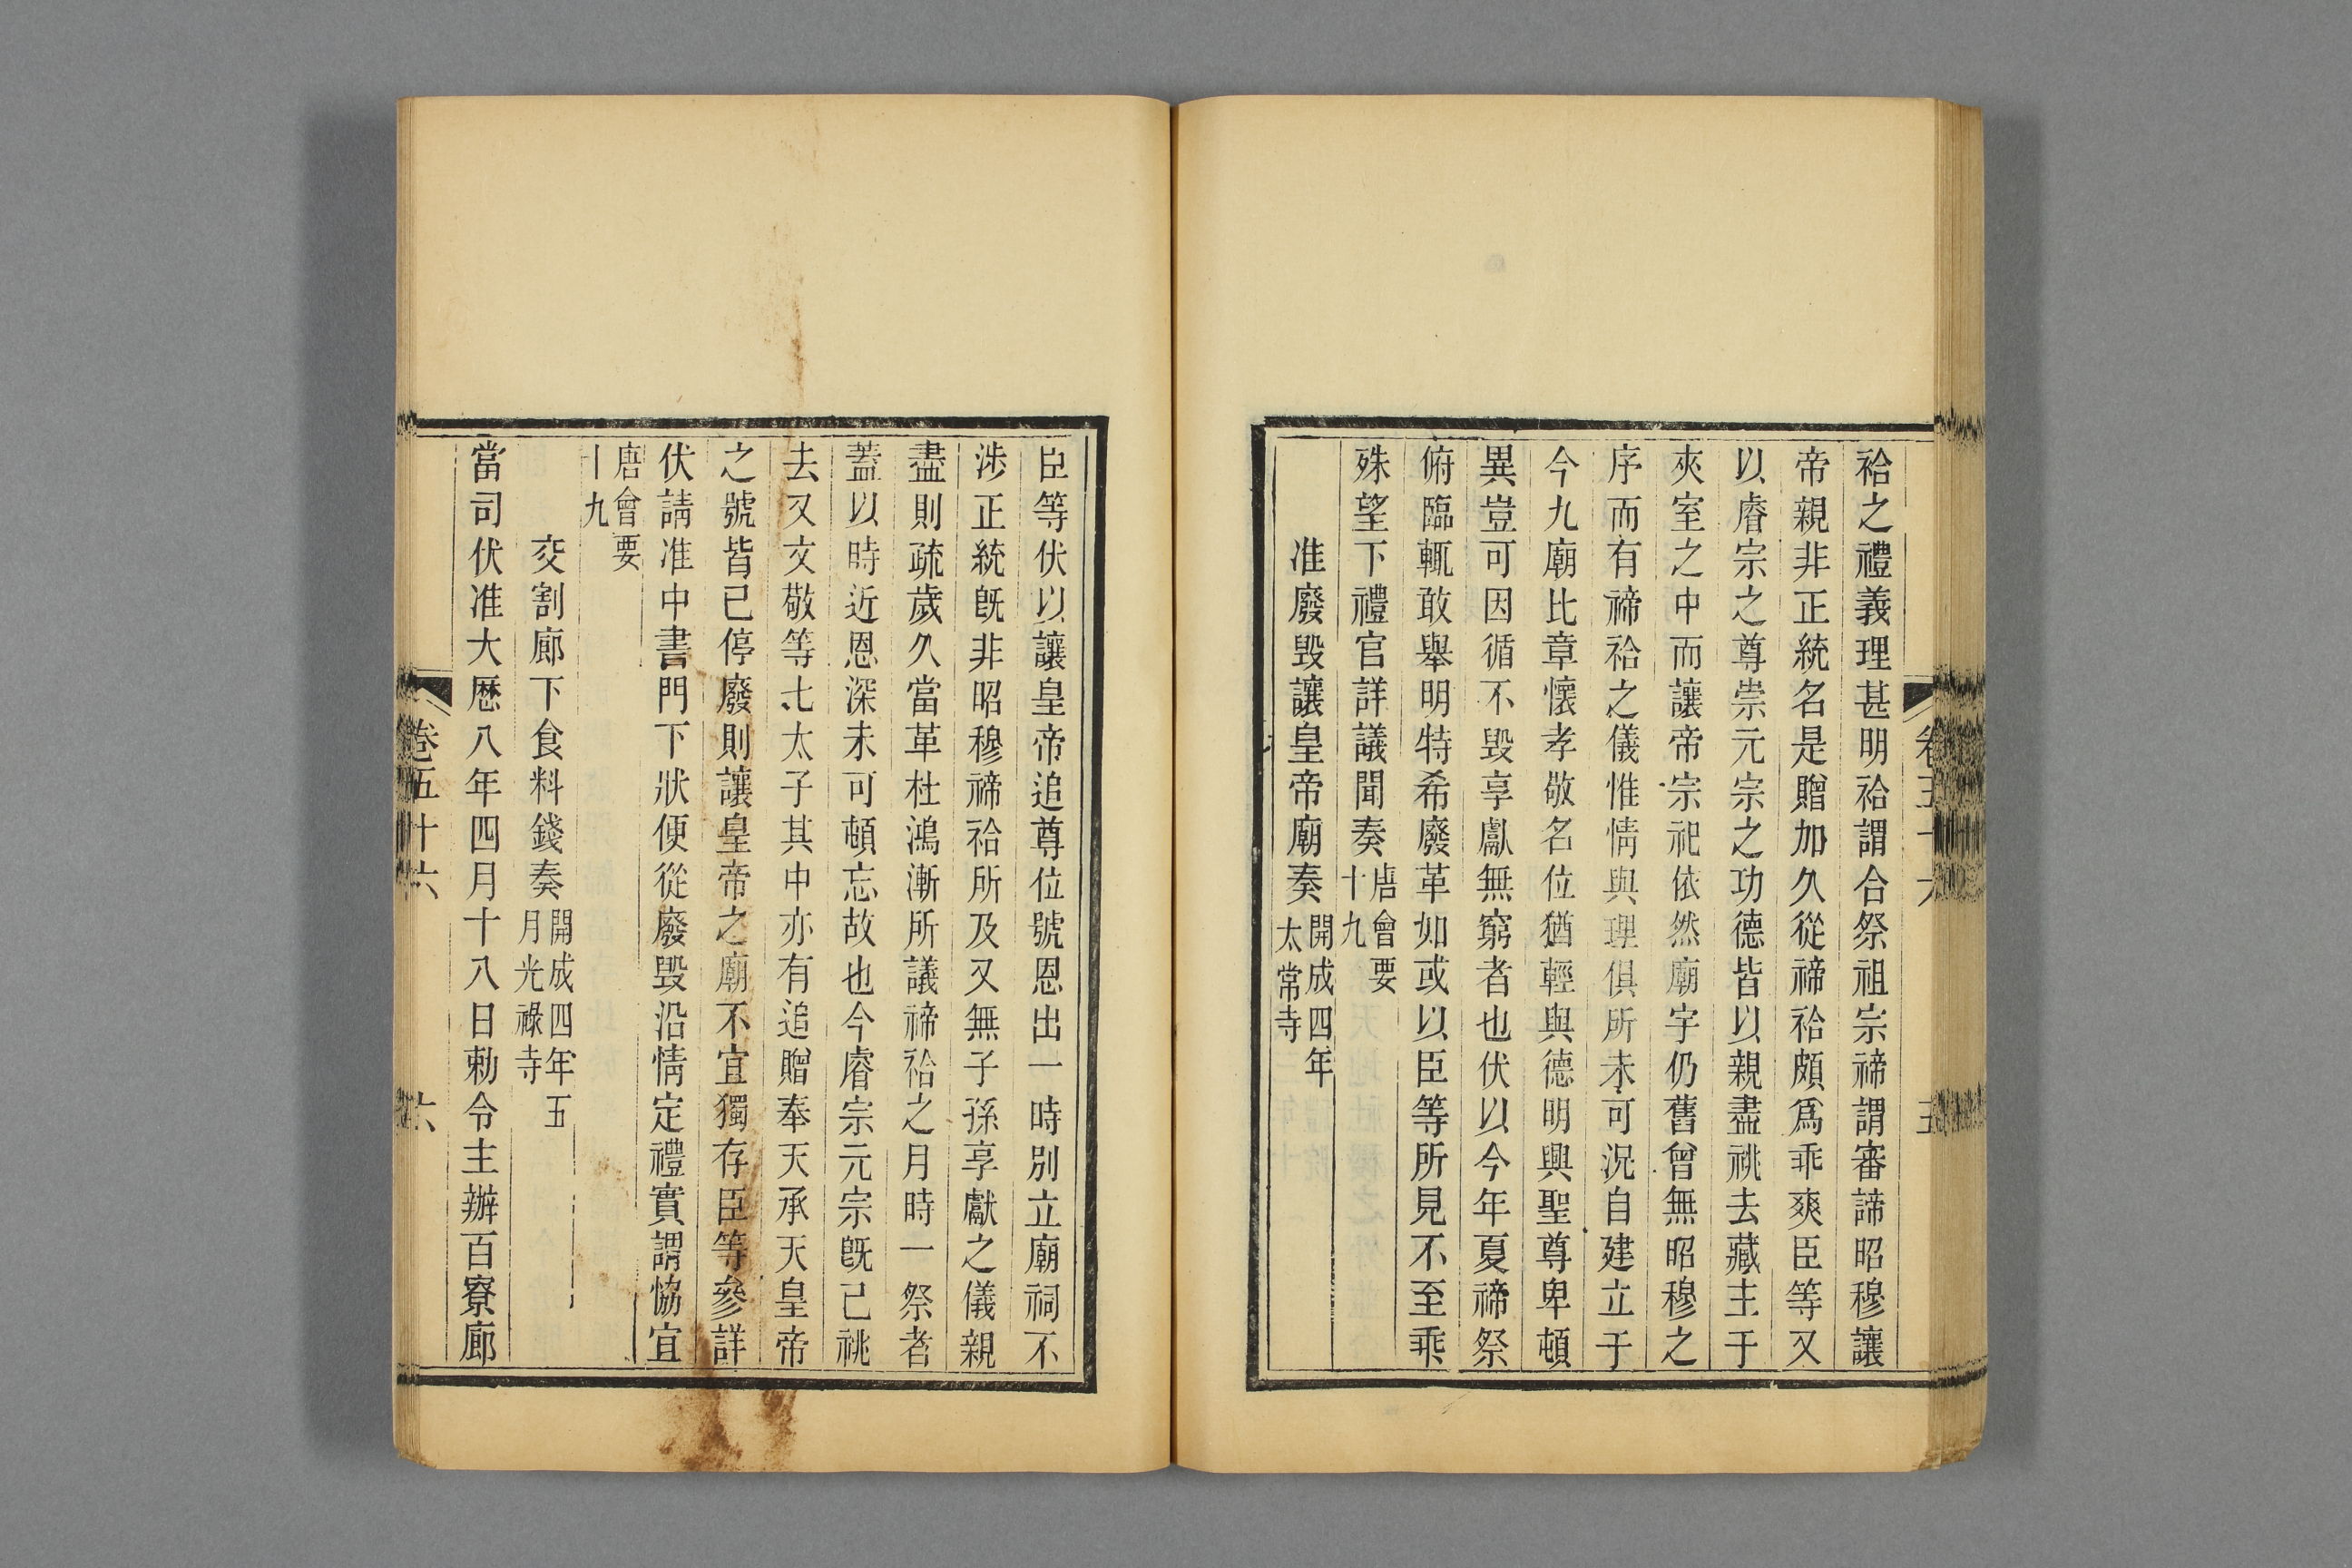 祫之禮義理甚明祫謂合祭祖宗禘謂審諦昭穆讓
帝親非正統名是贈加久從禘祫頗爲乖爽臣等又
以睿宗之尊崇元宗之功德皆以親盡祧去藏主于
夾室之中而讓帝宗祀依然廟宇仍舊曾無昭穆之
序而有禘祫之儀惟情與理俱所未可況自建立于
今九廟比章懷孝敬名位猶輕與德明興聖尊卑頓
異豈可因循不毀享獻無窮者也伏以今年夏禘祭
俯臨輒敢舉明特希廢革如或以臣等所見不至乖
殊望下禮官詳議聞奏唐會要
十九
准廢毀讓皇帝廟奏開成四年
太常寺
卷五十六
五
臣等伏以讓皇帝追尊位號恩出一時別立廟祠不
涉正統既非昭穆禘祫所及又無子孫享獻之儀親
盡則疏歲久當革杜鴻漸所議禘祫之月時一祭者
蓋以時近恩深未可頓忘故也今睿宗元宗既已祧
去又文敬等七太子其中亦有追贈奉天承天皇帝
之號皆已停廢則讓皇帝之廟不宜獨存臣等參詳
伏請准中書門下狀便從廢毀沿情定禮實謂恊宜
唐會要
十九
交割廊下食料錢奏開成四年五
月光祿寺
當司伏准大厯八年四月十八日勅令主辦百寮廊
卷五十六
六